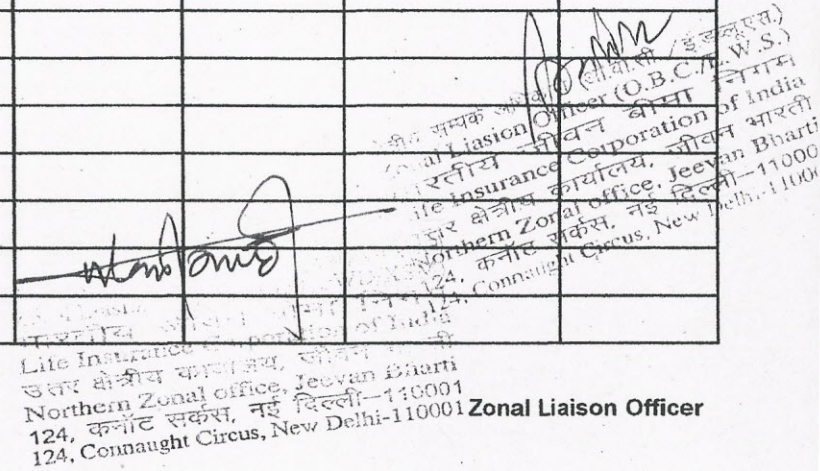 सम्पर्क (ओ.बी.सी / इ.डब्लू.एस.)
Liasion Officer (O.B.C./E.W.S.)
भारतीय जीवन बीमा निगम
Life Insurance Corporation of India
उत्तर क्षेत्रीय कार्यालय, जीवन भारती
Northern Zonal office, Jeevan Bharti
124, कनॉट सर्कस, नई दिल्ली-11000
124, Connaught Circus, New Delhi-11000
भारतीय
Life Insurance Corporation of India
उत्तर क्षेत्रीय कार्यालय, जीवन
Northern Zonal office, Jeevan Bharti
124, कनॉट सर्कस, नई दिल्ली-110001
124, Connaught Circus, New Delhi-110001
Zonal Liaison Officer